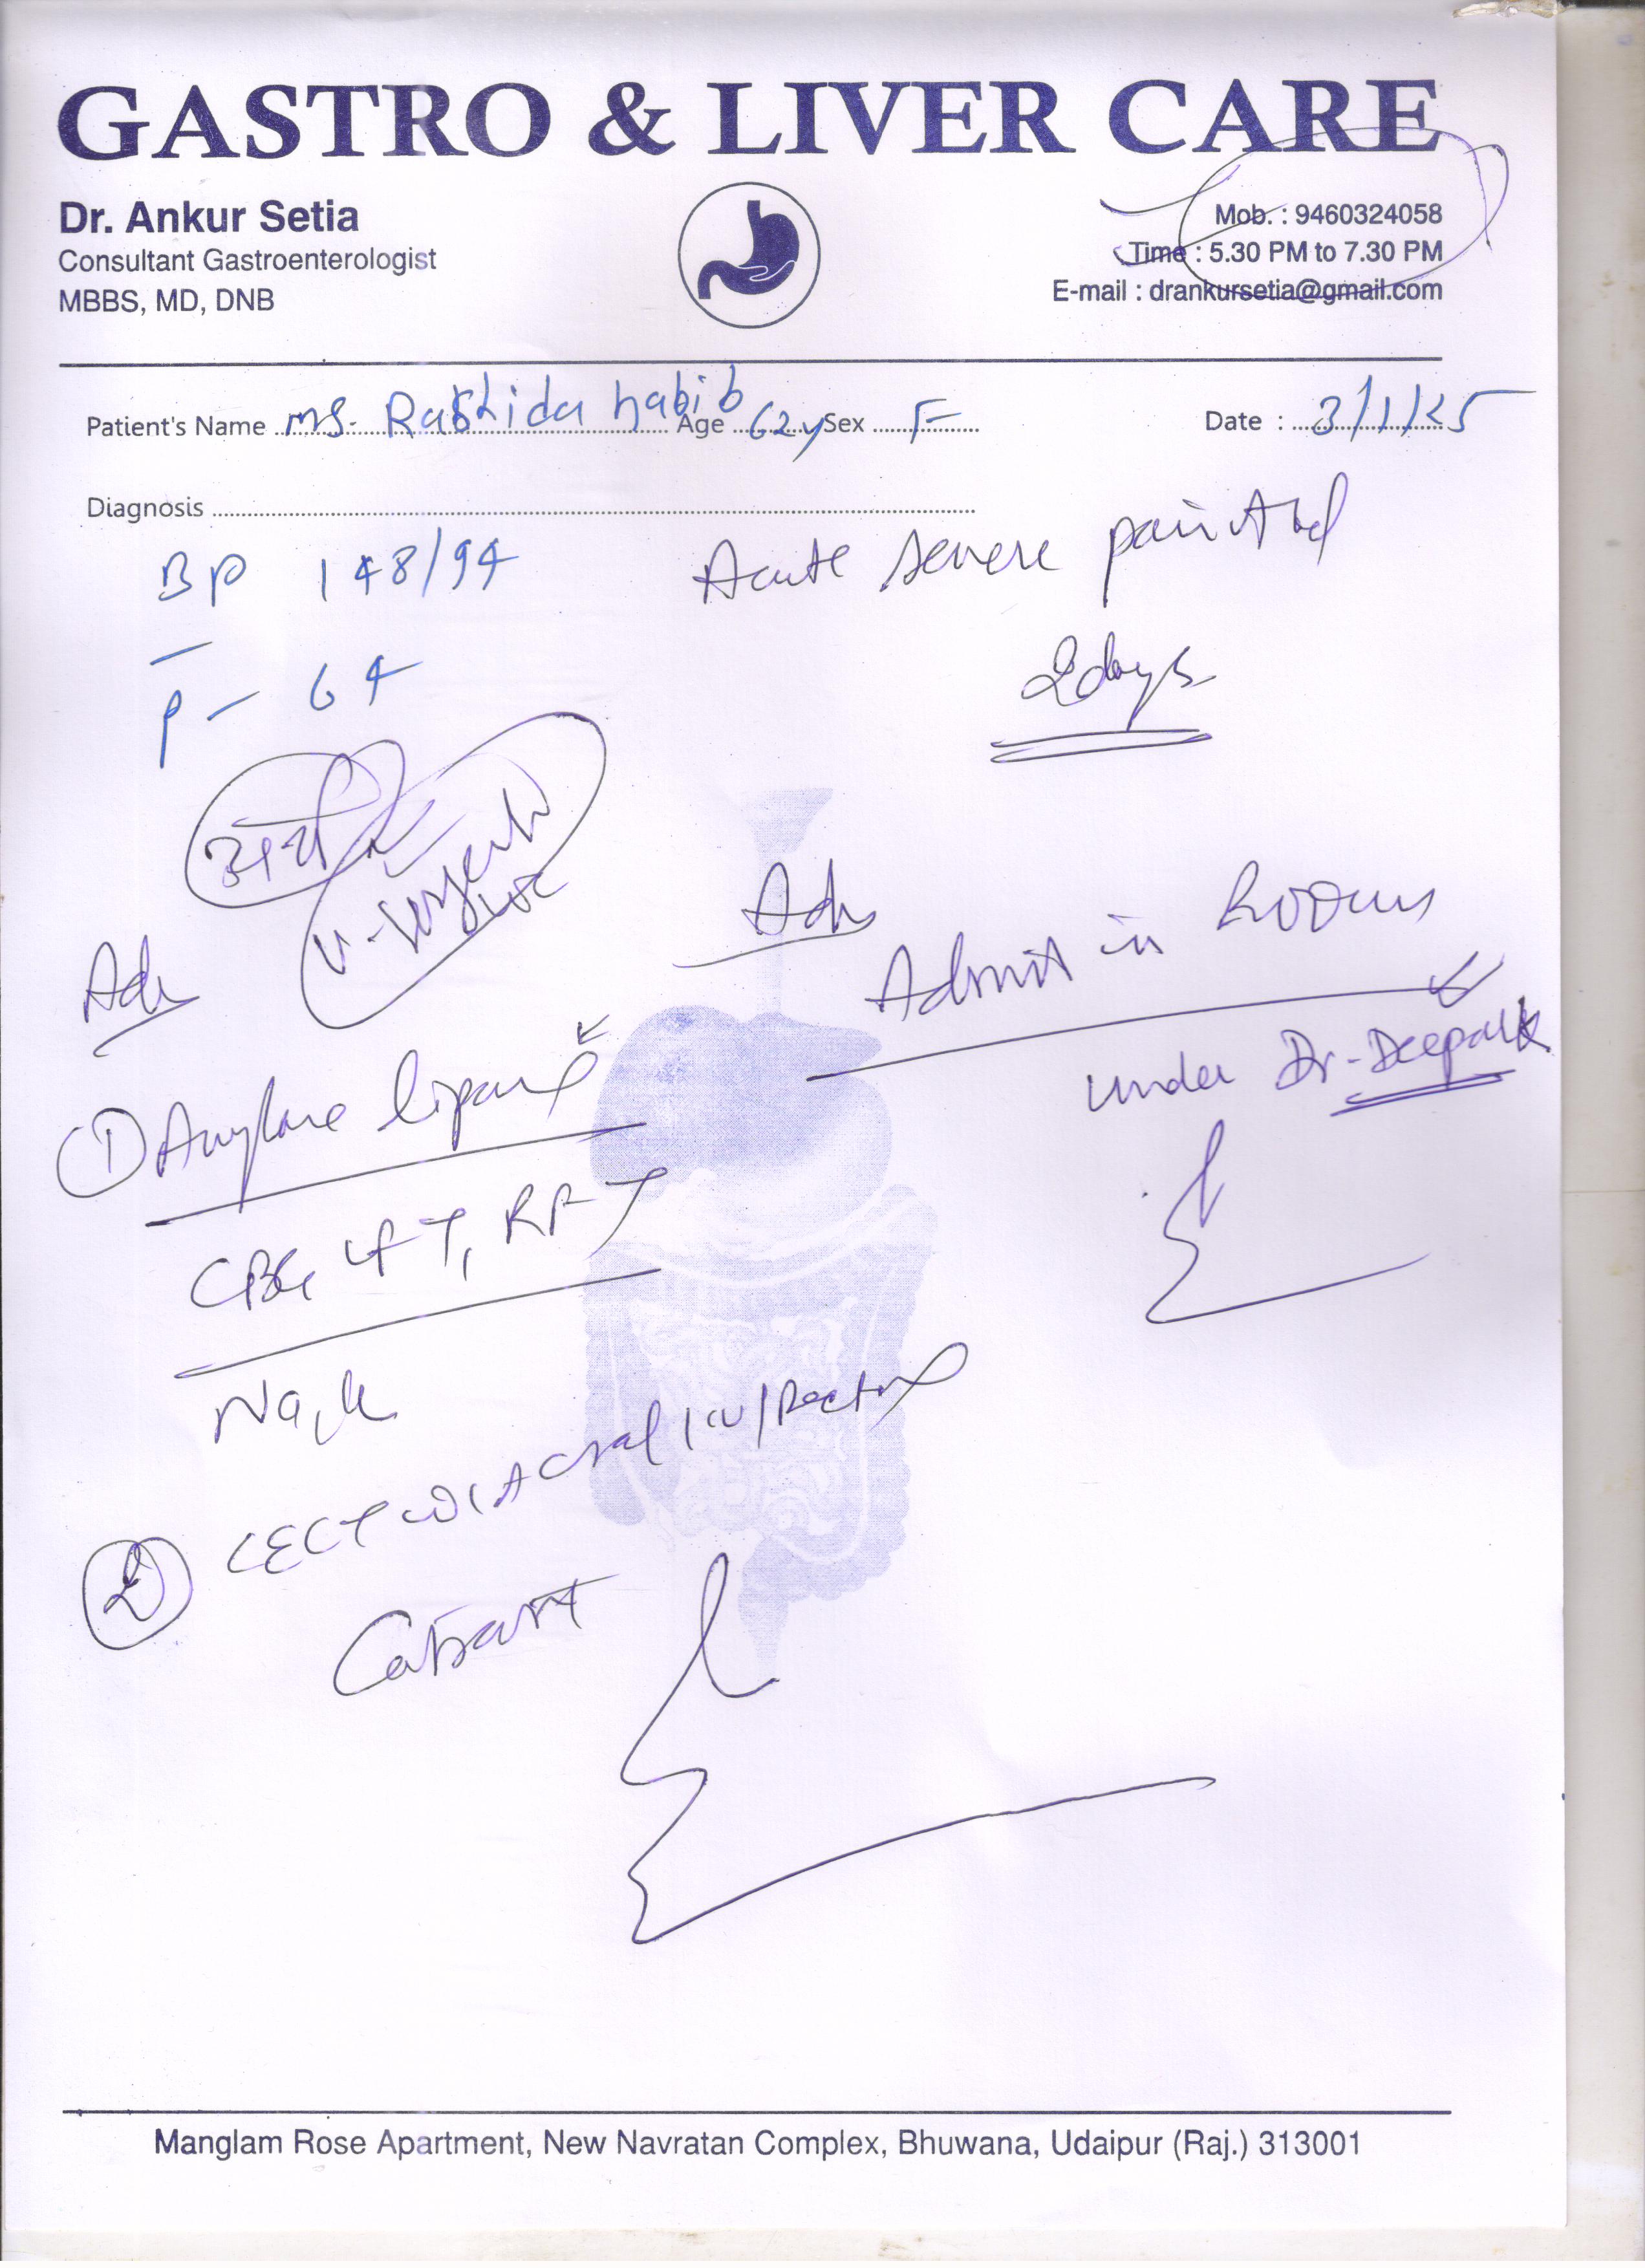 GASTRO & LIVER CARE
Dr. Ankur Setia
Consultant Gastroenterologist
MBBS, MD, DNB
Mob. : 9460324058
Time : 5.30 PM to 7.30 PM
E-mail : drankursetia@gmail.com
Patient's Name ms. Rashida habib Age 62y Sex F Date : 3/1/25
Diagnosis
BP 148/94
P - 64
Acute severe pain Abd
2days
Adv
Admit in
under Dr. Deepak
Adv
① Amylase lipase
CBC, LFT, RFT
Na, K
② CECT W/A oral/IV/Rectal
Contrast
Manglam Rose Apartment, New Navratan Complex, Bhuwana, Udaipur (Raj.) 313001